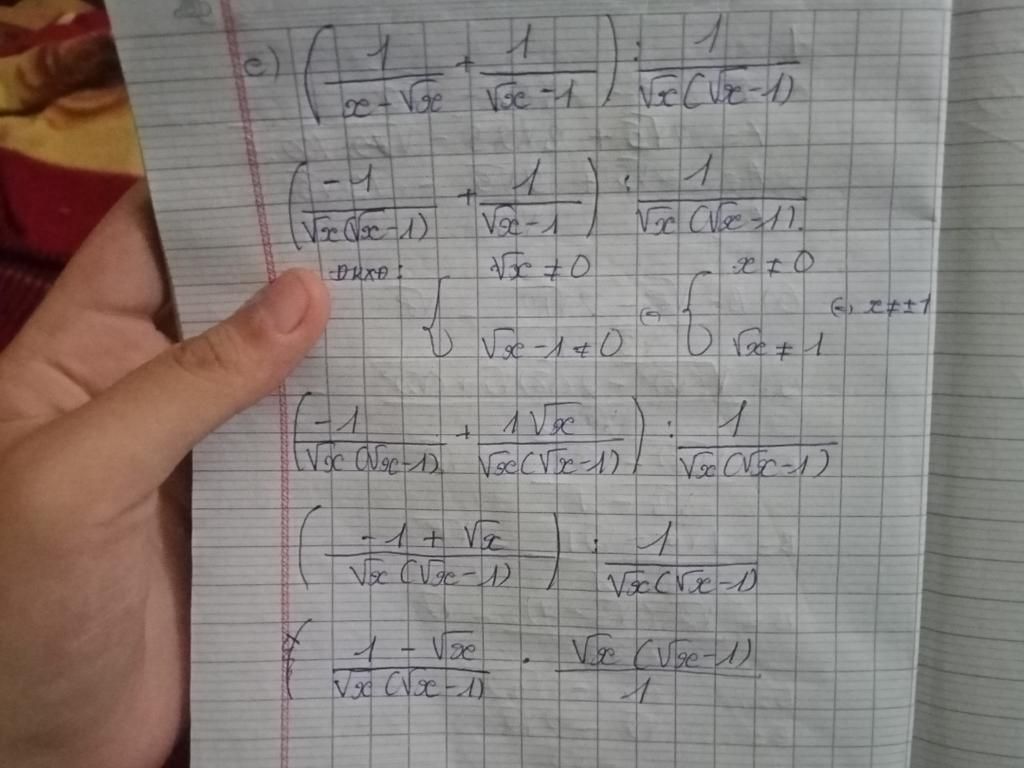 c) ( 1/(x - √x) + 1/(√x - 1) ) : 1/(√x (√x - 1))
( -1/(√x (√x - 1)) + 1/(√x - 1) ) : 1/(√x (√x - 1)).
ĐKXĐ: { √x ≠ 0 ; √x - 1 ≠ 0 ⇔ { x ≠ 0 ; √x ≠ 1 ⇔ x ≠ ±1
( -1/(√x (√x - 1)) + 1√x/(√x (√x - 1)) ) : 1/(√x (√x - 1))
( (-1 + √x)/(√x (√x - 1)) ) : 1/(√x (√x - 1))
(1 - √x)/(√x (√x - 1)) . √x (√x - 1)/1